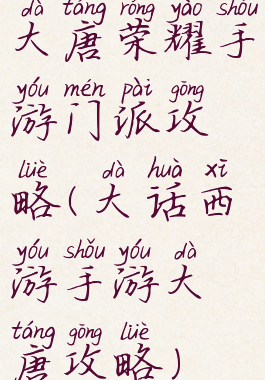 dà táng róng yào shǒu
大唐荣耀手
yóu mén pài gōng
游门派攻
lüè dà huà xī
略(大话西
yóu shǒu yóu dà
游手游大
táng gōng lüè
唐攻略)